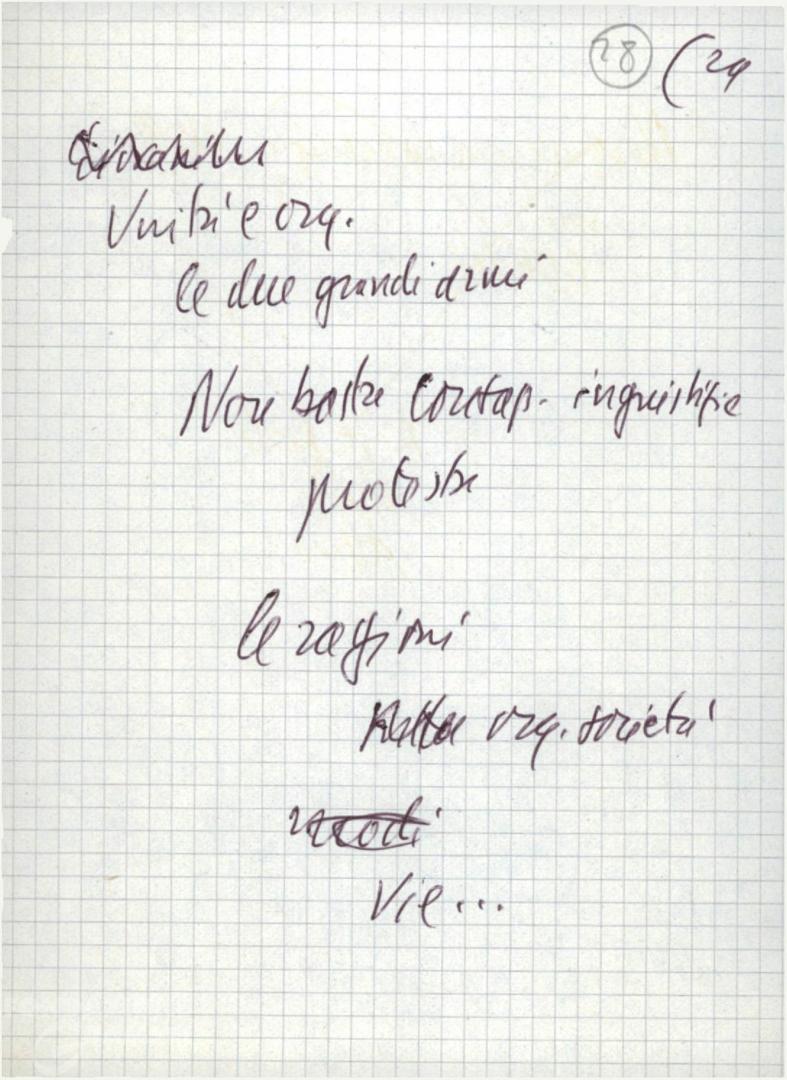 28 (29
Unità e org.
le due grandi armi
Non basta contrap. ingiustizie
protesta
le ragioni
org. società
modi
Vie...